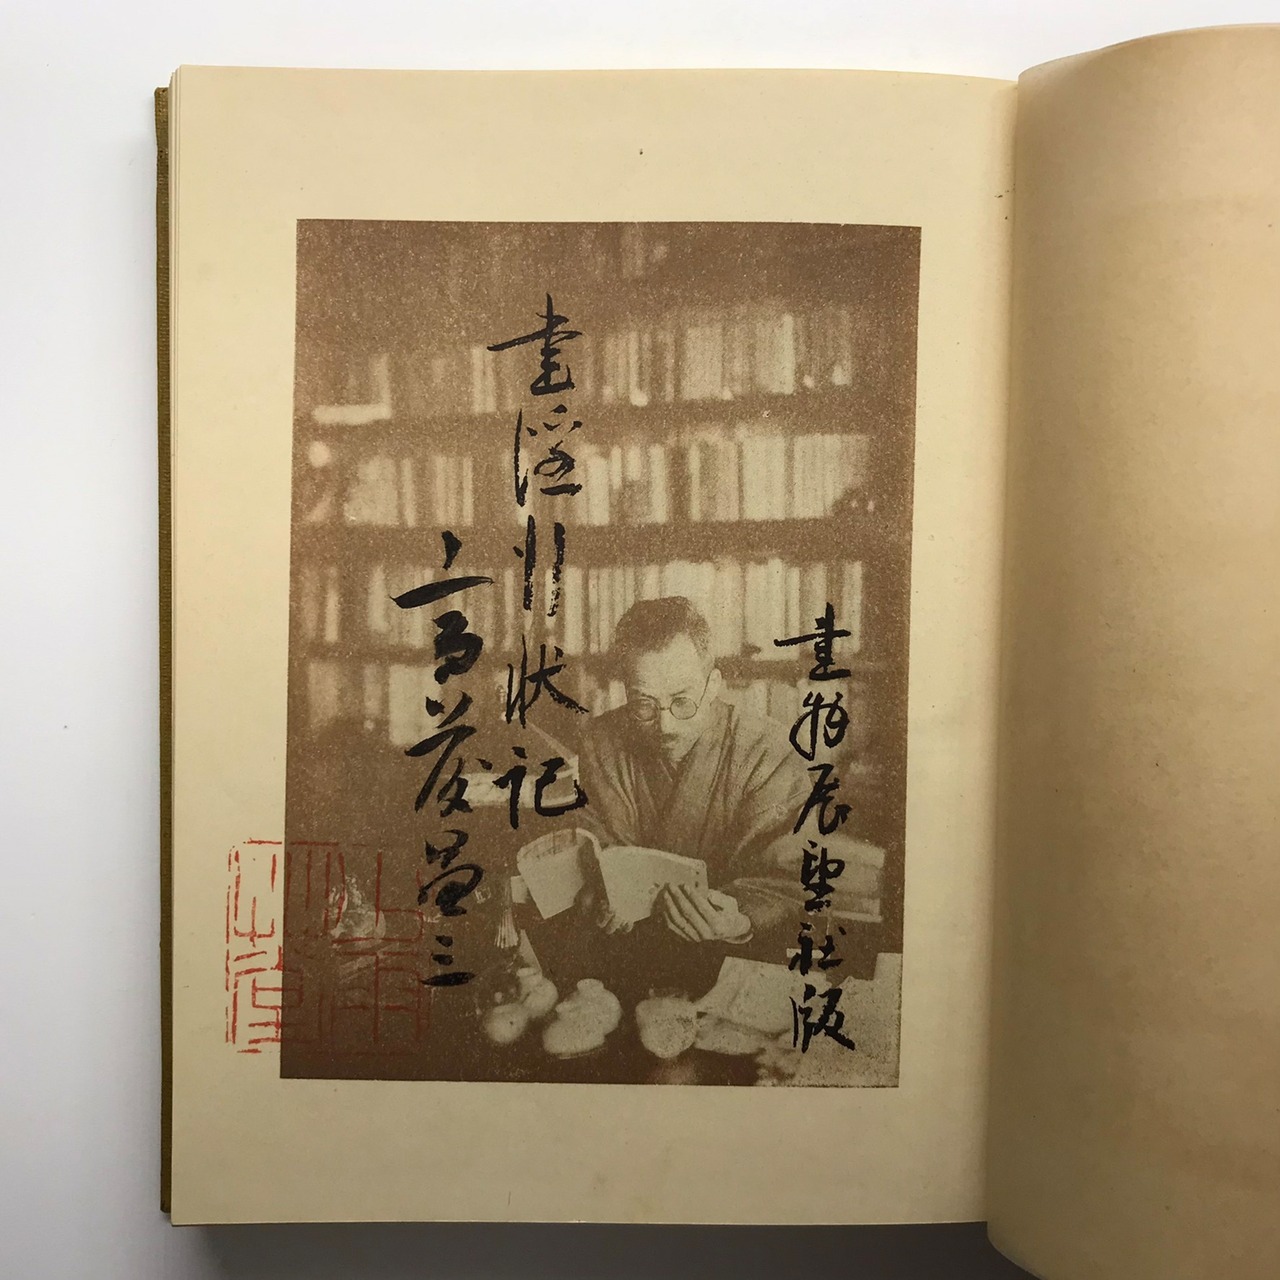 書物展望社版
書淫行状記
斎藤昌三